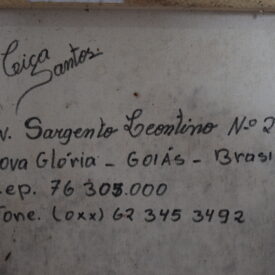 Ciça
Santos.
v. Sargento Leontino Nº 2
ova Glória - GOIÁS - Brasi
ep. 76 305.000
one. (0xx) 62 345 3492